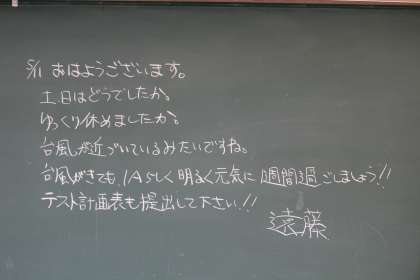 5/11 おはようございます。
土日はどうでしたか。
ゆっくり休めましたか。
台風が近づいているみたいですね。
台風がきても、1Aらしく明るく元気に1週間過ごしましょう!!
テスト計画表も提出して下さい!!
遠藤